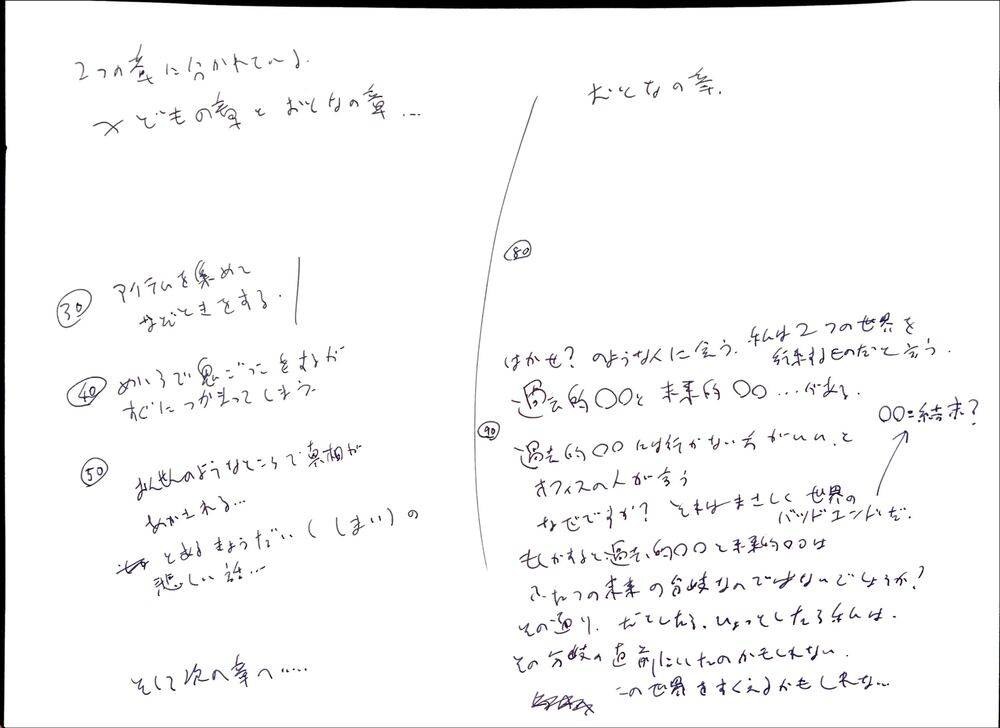 2つの章に分かれている.
こどもの章とおとなの章...
㉚ アイテムを集めて
なぞときをする.
㊵ めいろで鬼ごっこをするが
すぐにつかまってしまう.
㊿ おんせんのようなところで真相が
あかされる...
とあるきょうだい(しまい)の
悲しい話...
そして次の章へ.....
おとなの章.
(80)
はかせ? のような人に会う. 私は2つの世界を
行来するものだと言う.
過去的〇〇と未来的〇〇...がある.
(90)
〇〇=結末?
過去的〇〇には行かない方がいい.と
オフィスの人が言う
なぜですか? それはまさしく世界の
バッドエンドだ.
もしかすると過去的〇〇と未来的〇〇は
ふたつの未来の分岐なのではないでしょうか?
その通り. だとしたら、ひょっとしたら私は.
その分岐の直前にいたのかもしれない.
この世界をすくえるかもしれな...